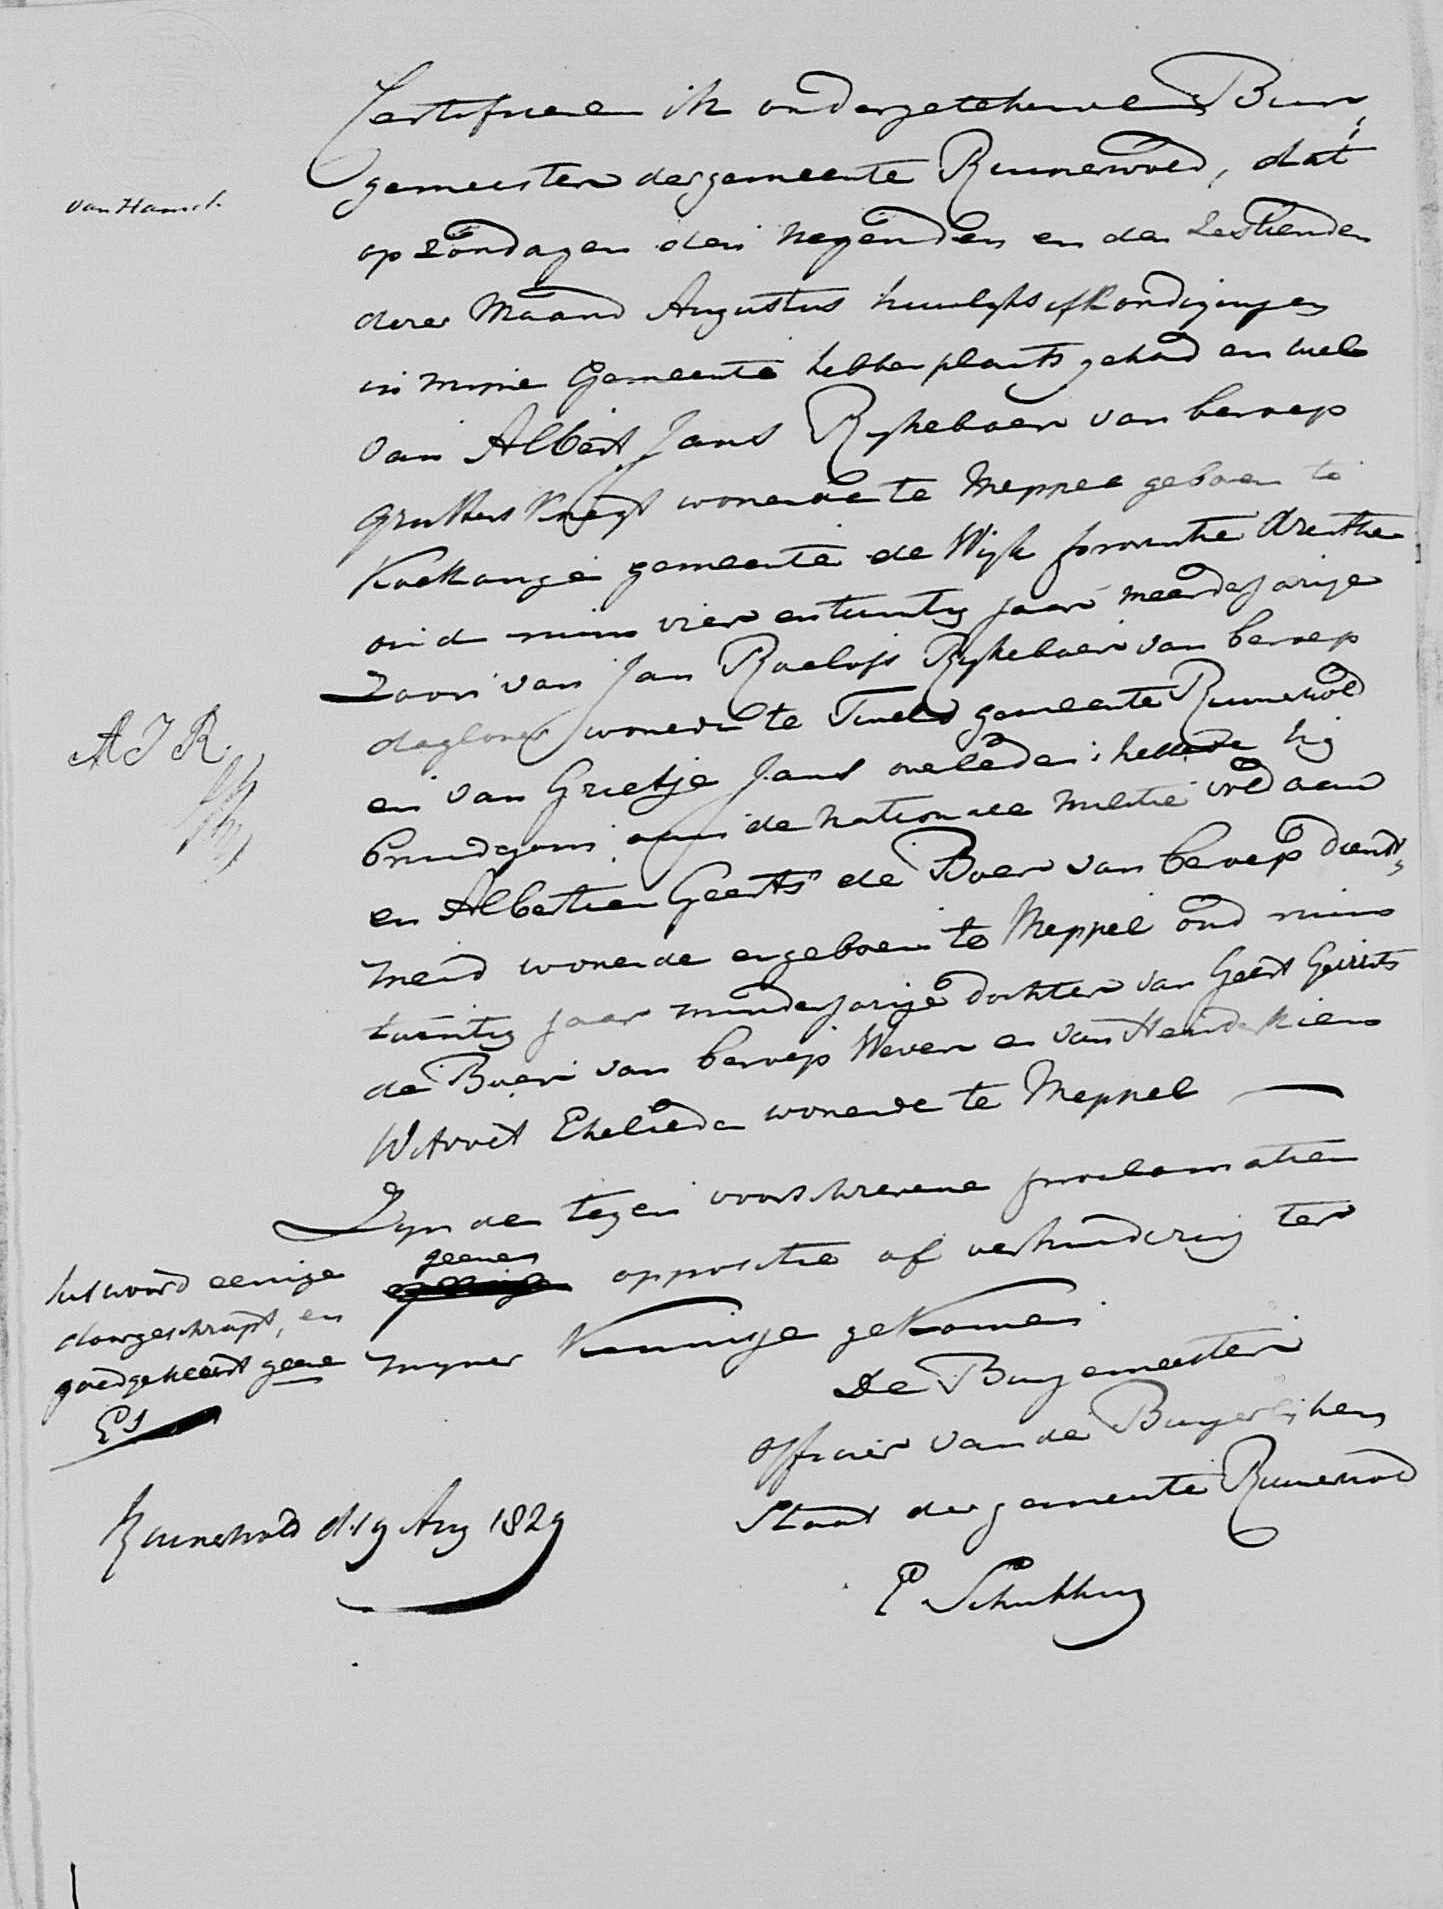 Certificeere ik ondergetekende Bur,
gemeester der gemeente Ruinerwold, dat
van Hamel.
op zondagen den negenden en den zestienden
dezer Maand Augustus huwelyks afkondigingen
in mijne Gemeente hebben plaats gehad en wel
van Albert Jans Rykeboer van beroep
grutters knegt wonende te Meppel geboren te
Koekange gemeente de Wijk provintie Drenthe
oud ruim vier en twintig jaar meerderjarige
Zoon van Jan Roelofs Rykeboer van beroep
dagloner wonende te gemeente Ruinerwold
A J R.
en van Grietje Jans overleden; hebbende hij
bruidegom aan de nationale militie voldaan
en Albertien Geerts de Boer van beroep dienst,
meid wonende en geboren te Meppel oud ruim
twintig jaar minderjarige dochter van Geert Gerrits
de Boer van beroep Wever en van Henderkien
Witvoet Ehelieden wonende te Meppel —
Zynde tegen voorschrevene proclamatien
geenen
het woord eenige oppositie of verhindering ter
doorgeschrapt, en
goedgekeurt geene mijner Kennisje gekomen
ES
De Burgemeester
officier van de Burgerlijken
Staat der gemeente Ruinerwold
Ruinerwold d. 19 Aug 1829
E Schukking